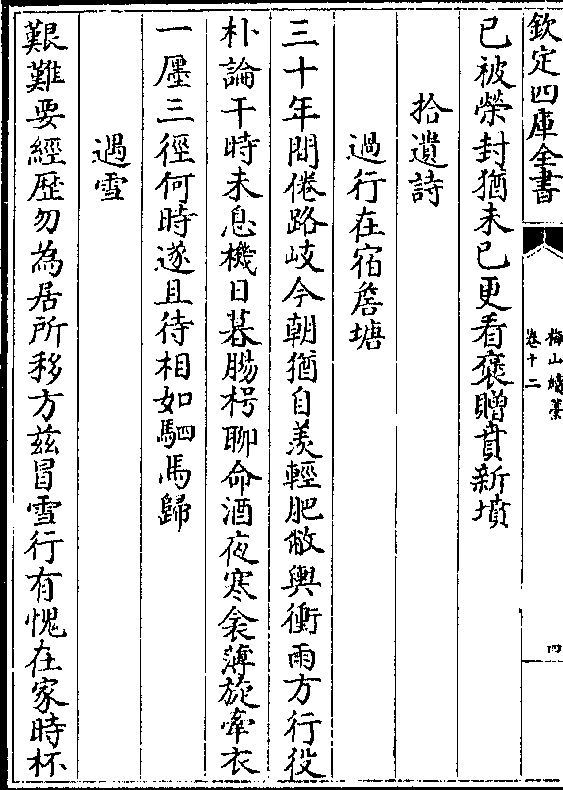 欽定四庫全書
梅山續藁
卷十二
四
已被榮封猶未已更看褒贈賁新墳
拾遺詩
過行在宿詹塘
三十年間倦路岐今朝猶自羡輕肥敝輿衝雨方行役
朴論干時未息機日暮腸枵聊命酒夜寒衾薄旋牽衣
一㕓三徑何時遂且待相如駟馬歸
遇雪
艱難要經歴勿為居所移方兹冒雪行有愧在家時杯